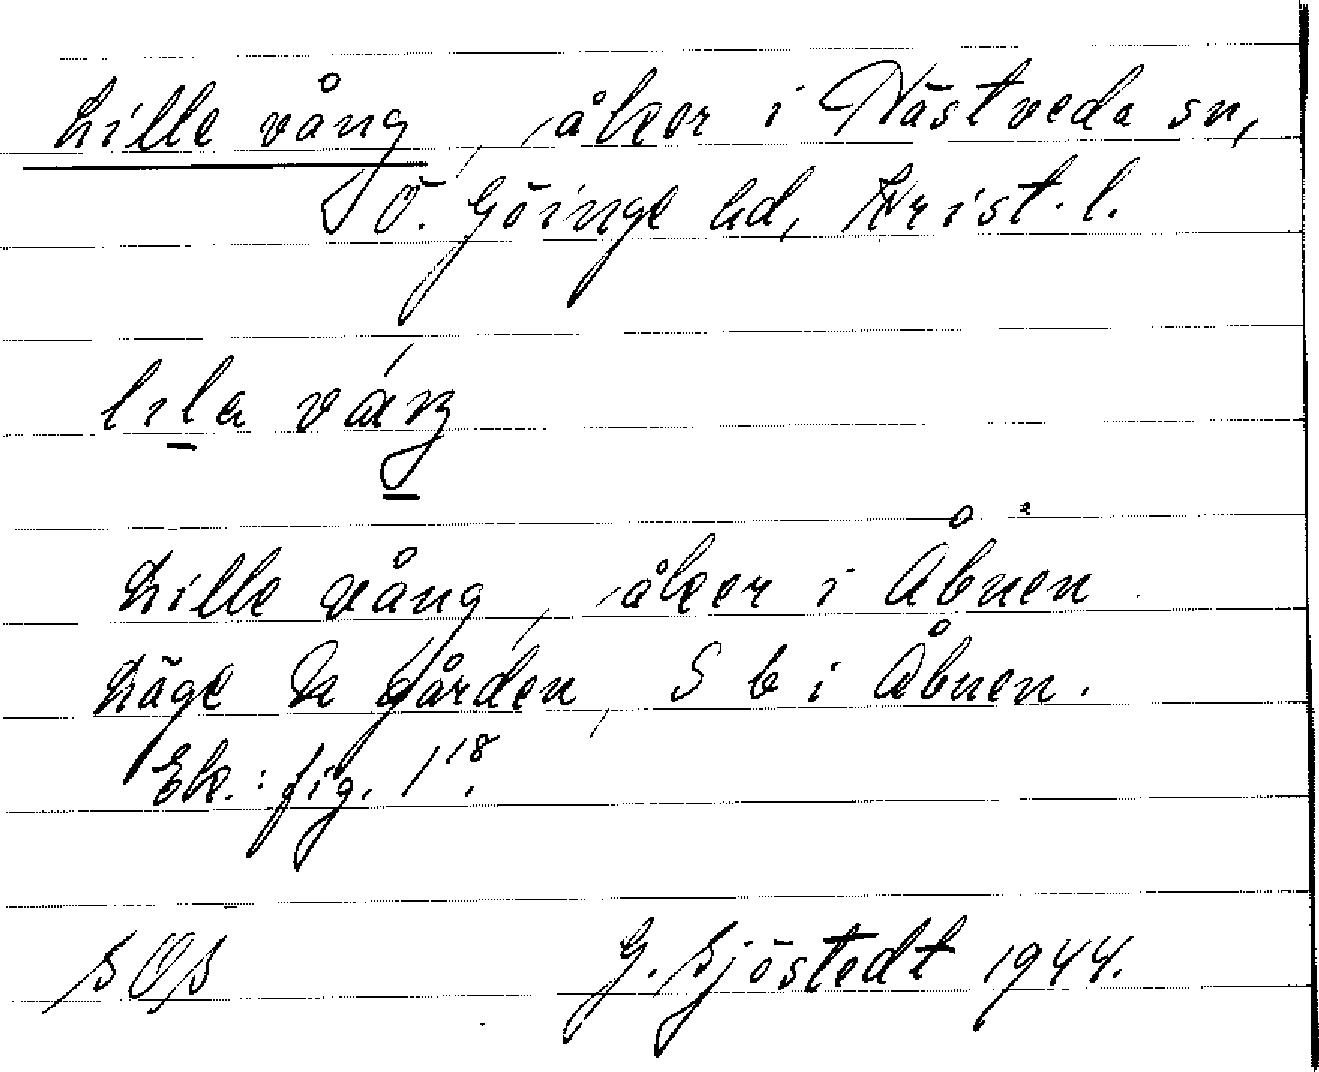 Lille vång, åker i Hästveda sn,
Ö. Göinge hd, Krist. l.
lila
Lille vång, åker i Åbuen
Läge på gården, S b i Åbuen.
Ek.: fig. 1 18.
G. Sjöstedt 1944.